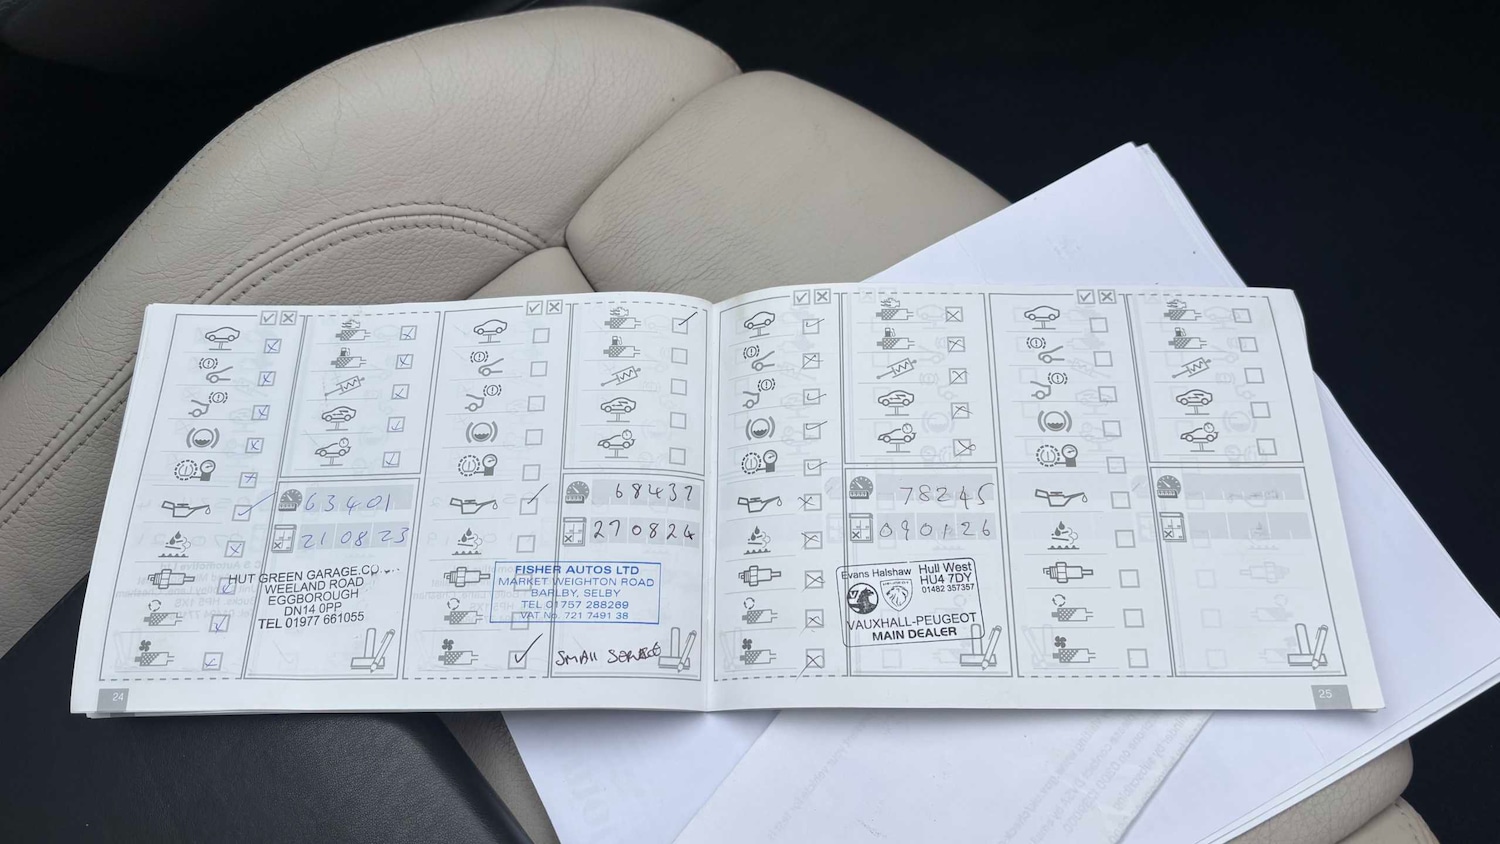 63401
21 08 23
HUT GREEN GARAGE.CO
WEELAND ROAD
EGGBOROUGH
DN14 0PP
TEL 01977 661055
24
68437
270824
FISHER AUTOS LTD
MARKET WEIGHTON ROAD
BARLBY, SELBY
TEL 01757 288269
VAT No. 721 7491 38
SMAll SERVICE
78245
090126
Evans Halshaw
Hull West
HU4 7DY
01482 357357
VAUXHALL-PEUGEOT
MAIN DEALER
25